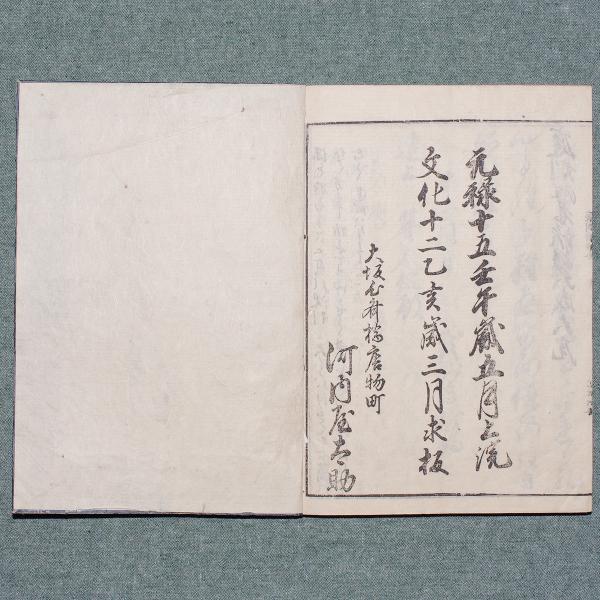 元禄十五壬午歳五月上浣
文化十二乙亥歳三月求板
大坂心斎橋唐物町
河内屋太助